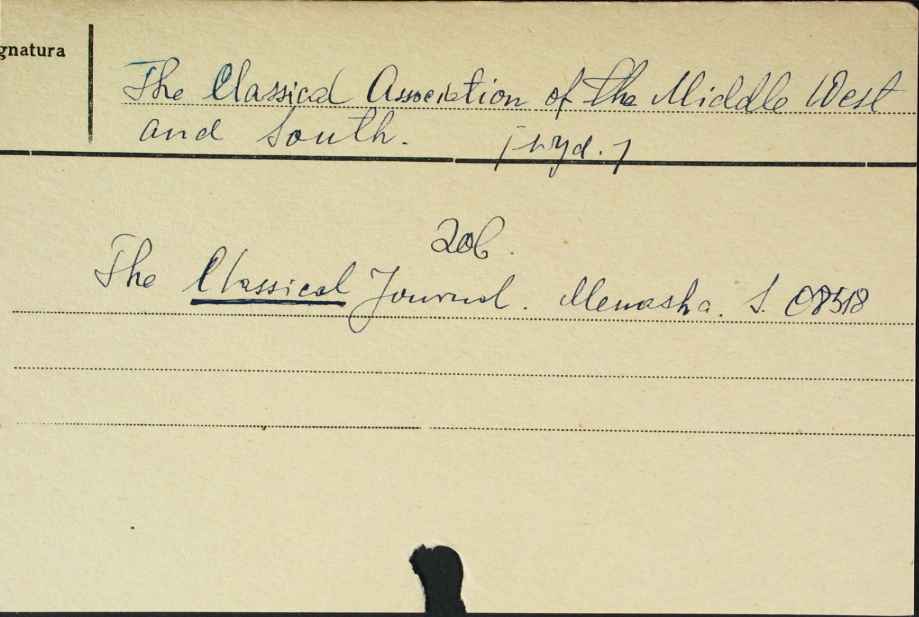 gnatura
The Classical Association of the Middle West
and South. [wyd.]
Zob.
The Classical Journal. Menasha. S. 08518